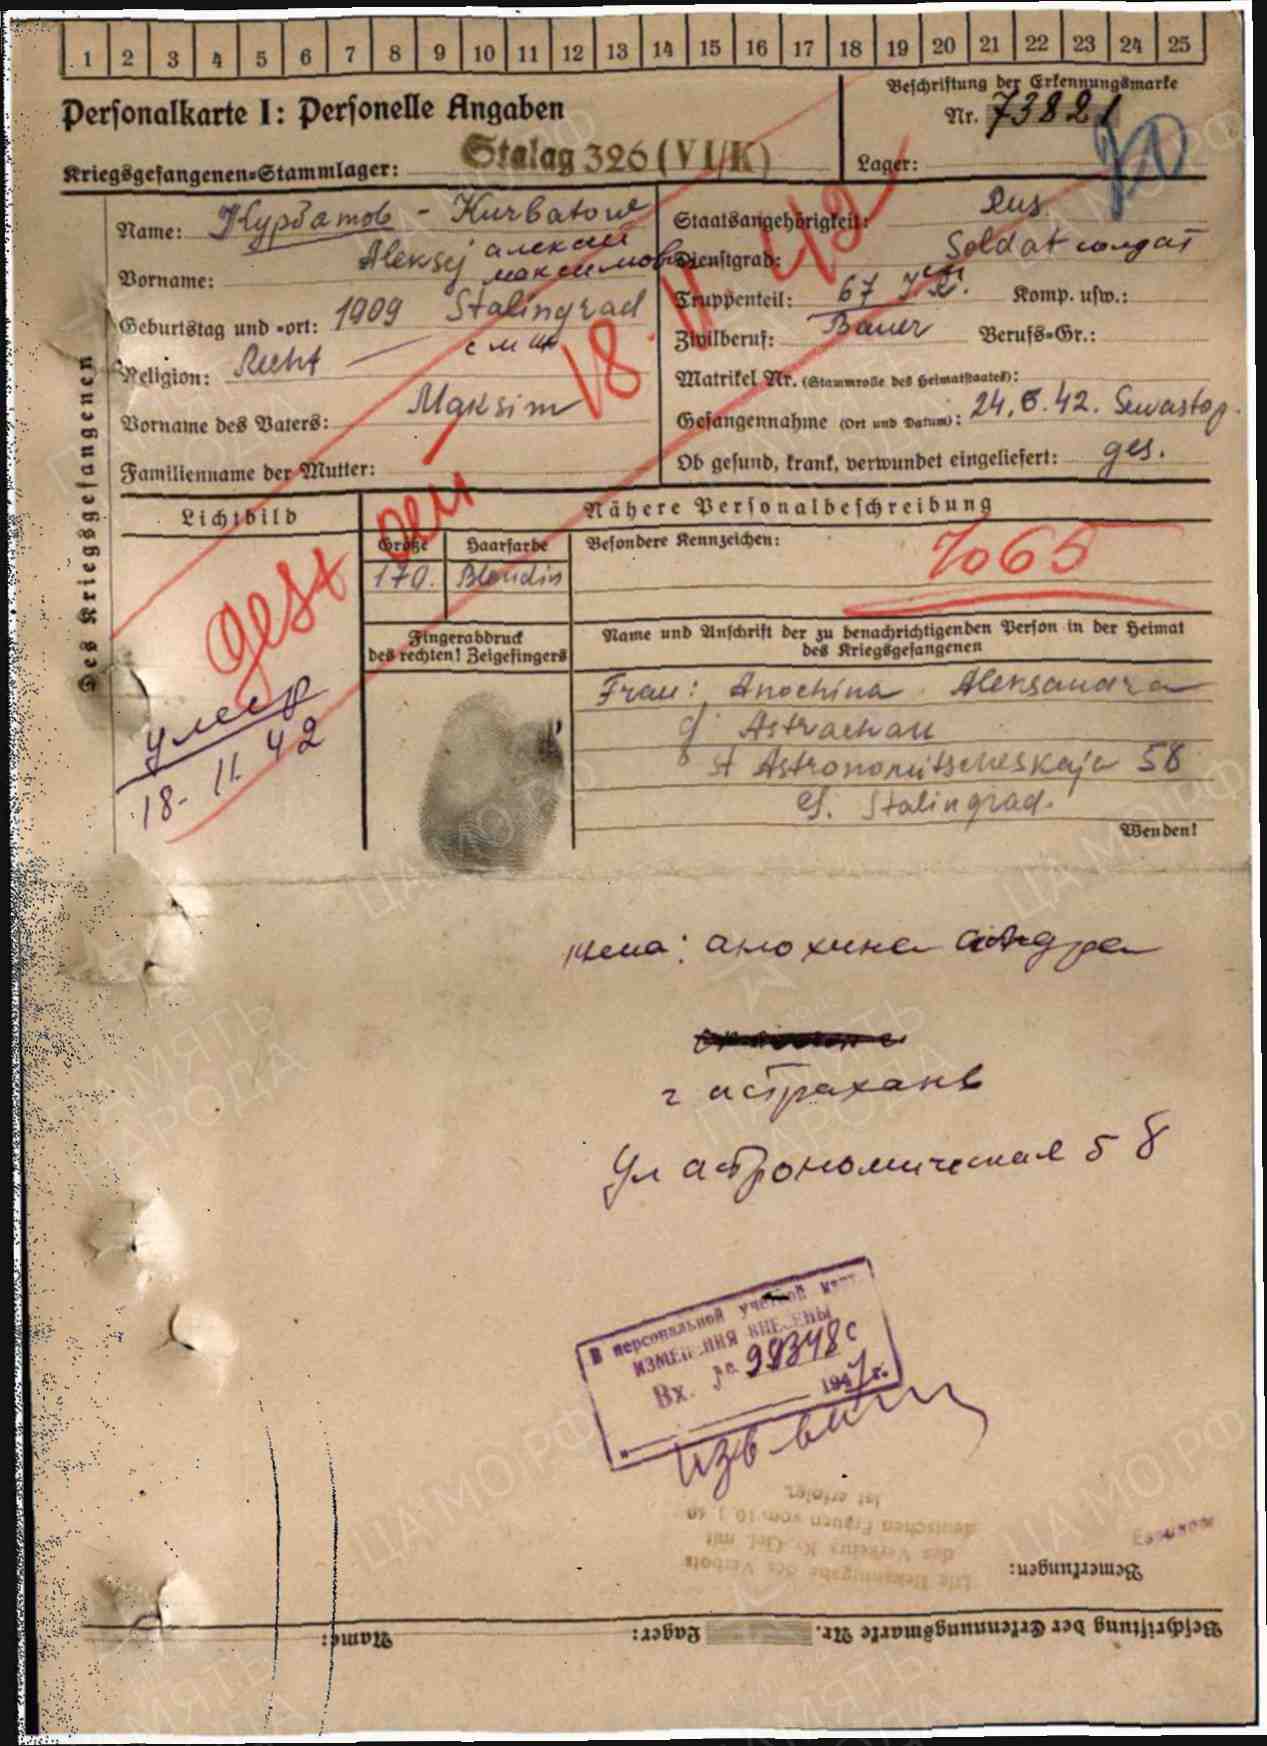 1 2 3 4 5 6 7 8 9 10 11 12 13 14 15 16 17 18 19 20 21 22 23 24 25
Personalkarte I: Personelle Angaben
Beschriftung der Erkennungsmarke
Nr. 73821
Kriegsgefangenen-Stammlager: Stalag 326 (VI/K)
Lager:
Des Kriegsgefangenen
Name: Курбатов - Kurbatow
Vorname: Aleksej алексей
максимов
Geburtstag und -ort: 1909 Stalingrad
Religion:
Vorname des Vaters: Maksim
Familienname der Mutter:
Staatsangehörigkeit: Rus.
Dienstgrad: Soldat солдат
Truppenteil: 67 Komp. usw.:
Zivilberuf: Bauer Berufs-Gr.:
Matrikel Nr. (Stammrolle des Heimatstaates):
Gefangennahme (Ort und Datum): 24.6.42. Sewastop.
Ob gesund, krank, verwundet eingeliefert: ges.
gest den 18.11.42
Lichtbild
Nähere Personalbeschreibung
Größe Haarfarbe Besondere Kennzeichen:
170. Blondin
7065
Fingerabdruck
des rechten! Zeigefingers
Name und Anschrift der zu benachrichtigenden Person in der Heimat
des Kriegsgefangenen
Frau: Anochina Aleksandra
g. Astrachan
st Astronomitscheskaja 58
Stalingrad.
Wenden!
умер
18. 11. 42
жена: анохина
г астрахань
Ул астрономическая 58
В персональной учетной
ИЗМЕНЕНИЯ ВНЕСЕНЫ
Вх. 99348с
1947 г.
Bemerkungen:
Die Bekanntgabe des Verbots
des Verkehrs Kr.Gef. mit
deutschen Frauen vom 10.1.40
ist erfolgt.
Beschriftung der Erkennungsmarke Nr. Lager: Name:
ПАМЯТЬ НАРОДА
ЦАМО.РФ